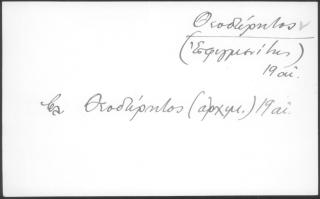 Θεοδώρητος
(Ἐσφιγμενίτης)
19 αἰ.
βλ. Θεοδώρητος (ἀρχιμ.) 19 αἰ.